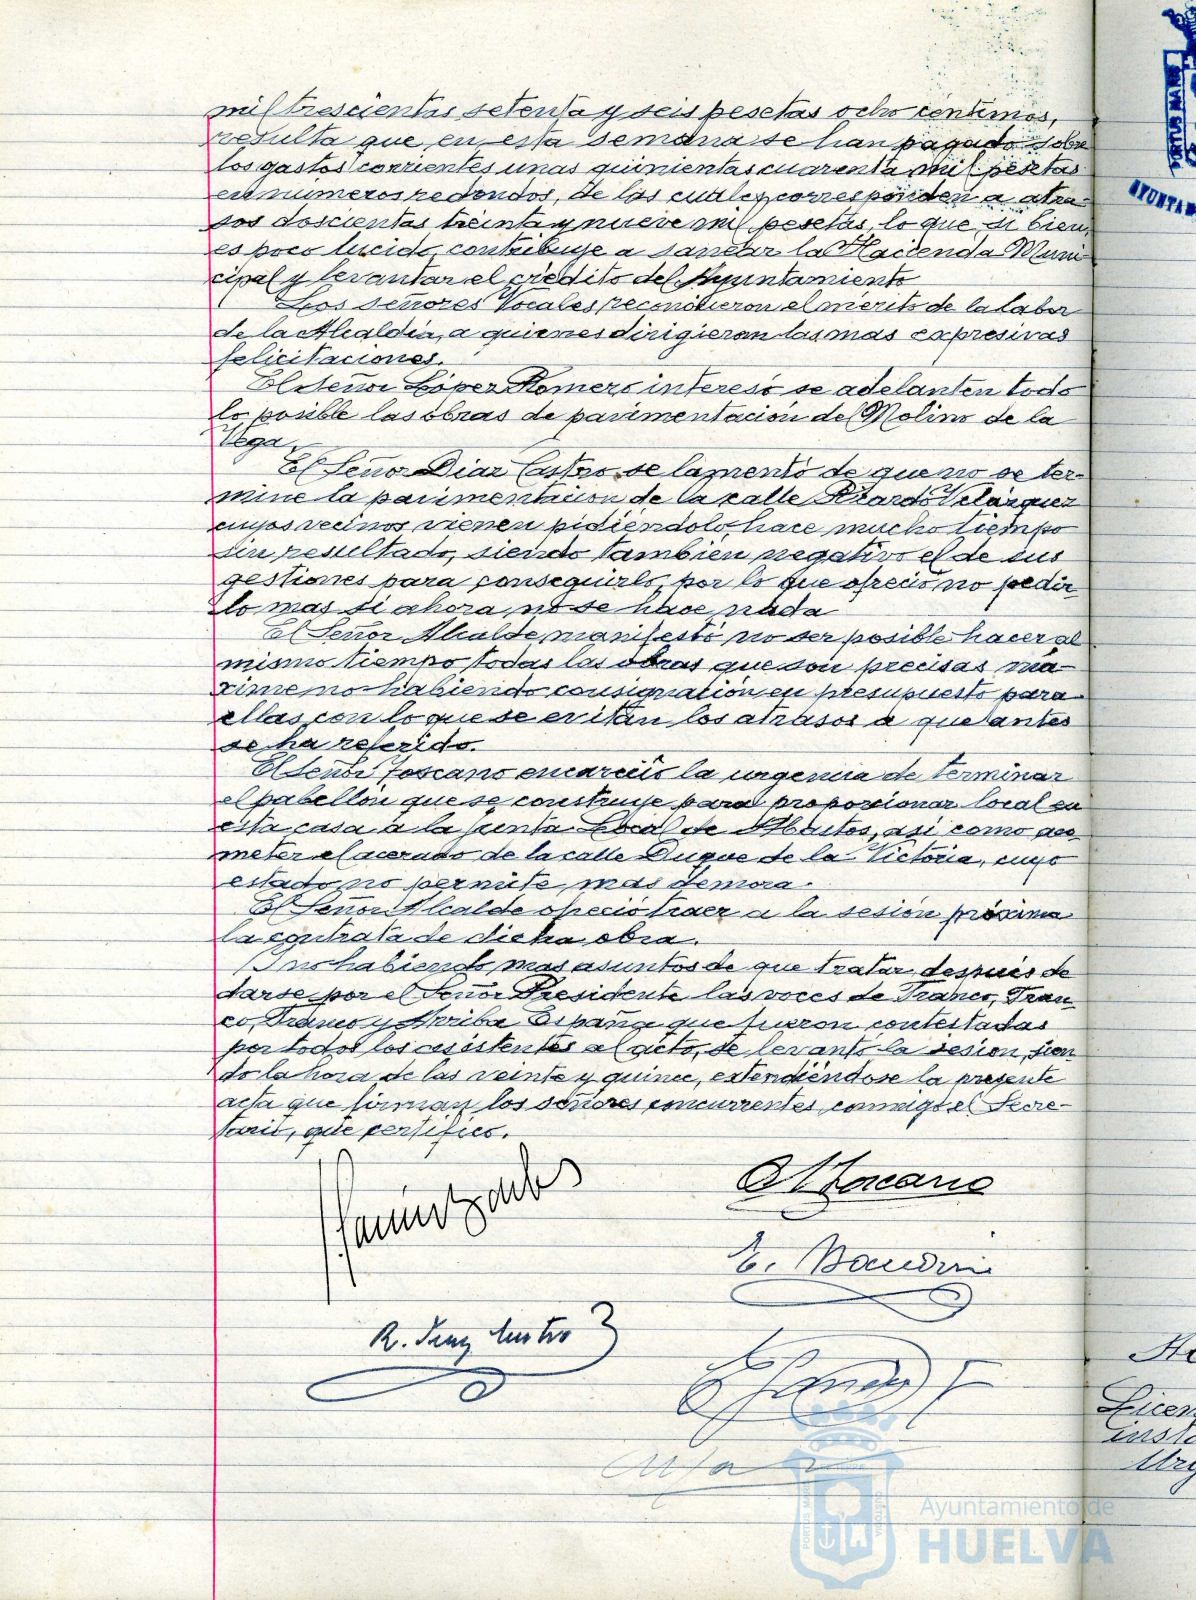 mil trescientas setenta y seis pesetas ocho centimos,
resulta que en esta semana se han pagado sobre
los gastos corrientes unas quinientas cuarenta mil pesetas
en numeros redondos, de las cuales corresponden a atra-
sos doscientas treinta y nueve mil pesetas, lo que si bien
es poco lucido contribuye a sanear la Hacienda Muni-
cipal y levantar el crédito del Ayuntamiento
Los señores Vocales reconocieron el mérito de la labor
de la Alcaldía, a quienes dirigieron las mas expresivas
felicitaciones.
El señor López Romero interesó se adelanten todo
lo posible las obras de pavimentación del Molino de la
Vega.
El Señor Diaz Castro se lamentó de que no se ter-
mine la pavimentación de la calle Ricardo Velázquez
cuyos vecinos vienen pidiéndolo hace mucho tiempo
sin resultado, siendo tambien negativo el de sus
gestiones para conseguirlo, por lo que ofreció no pedir-
lo mas si ahora no se hace nada
El Señor Alcalde manifestó no ser posible hacer al
mismo tiempo todas las obras que son precisas má-
xime no habiendo consignación en presupuesto para
ellas con lo que se evitan los atrasos a que antes
se ha referido.
El Señor Toscano encareció la urgencia de terminar
el pabellón que se construye para proporcionar local en
esta casa a la Junta Local de Abastos, asi como aco-
meter el acerado de la calle Duque de la Victoria, cuyo
estado no permite mas demora.
El Señor Alcalde ofreció traer a la sesión próxima
la contrata de dicha obra.
Y no habiendo mas asuntos de que tratar después de
darse por el Señor Presidente las voces de Franco, Fran-
co, Franco y Arriba España que fueron contestadas
por todos los asistentes al acto, se levantó la sesion, sien-
do la hora de las veinte y quince, extendiéndose la presente
acta que firman los señores concurrentes, conmigo el Secre-
tario, que certifico.
Toscano
E.
R. Diaz Castro
Ayuntamiento de
HUELVA